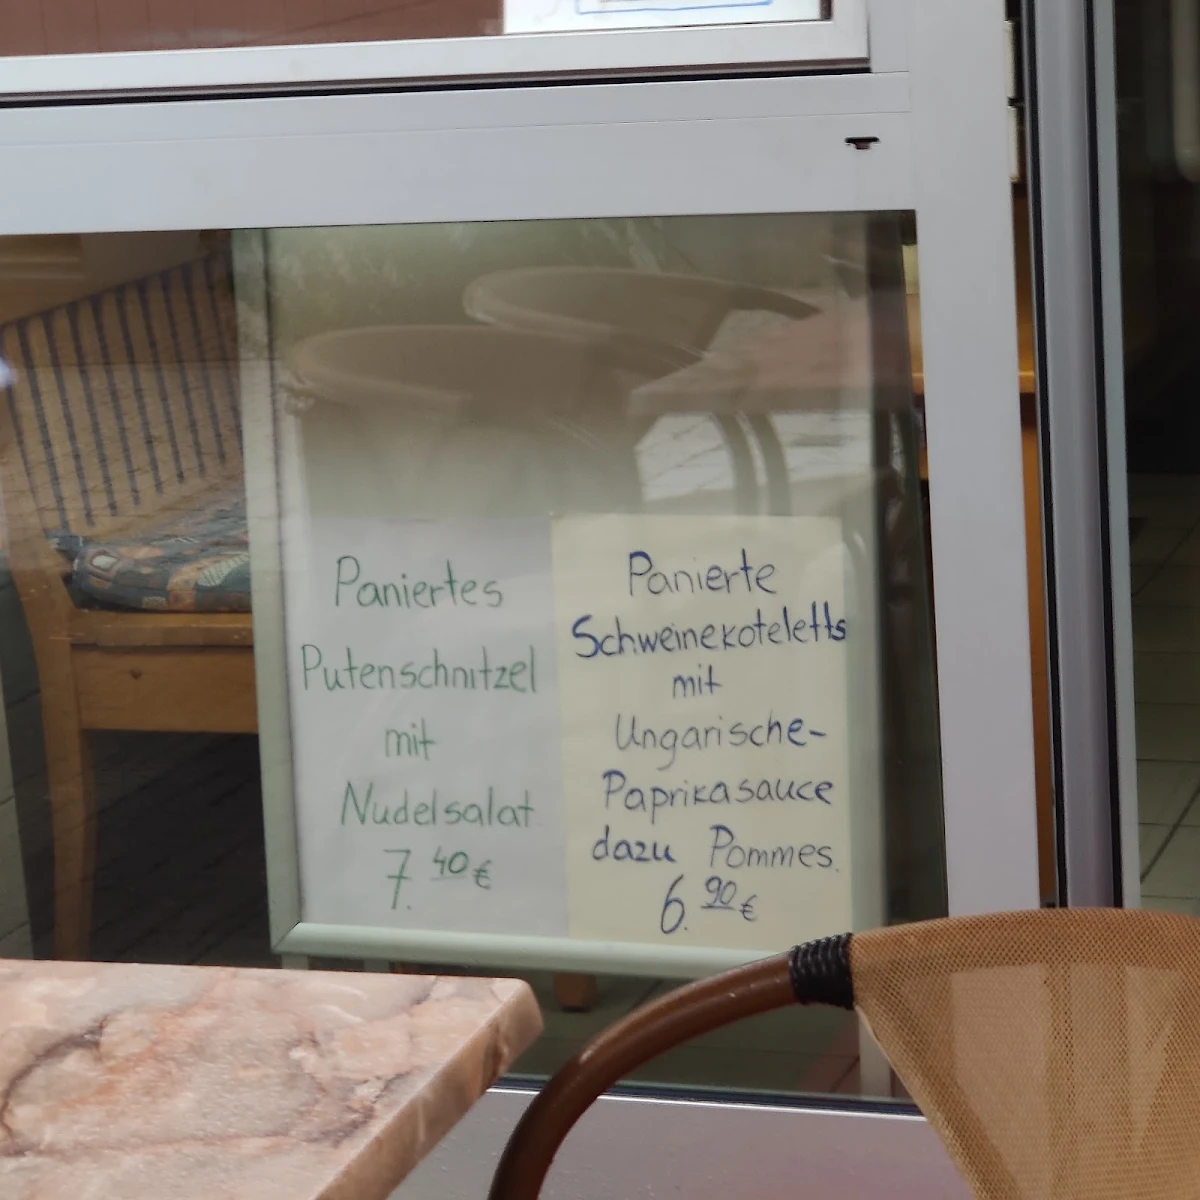 Paniertes
Putenschnitzel
mit
Nudelsalat
7.40€
Panierte
Schweinekoteletts
mit
Ungarische-
Paprikasauce
dazu Pommes.
6.90€